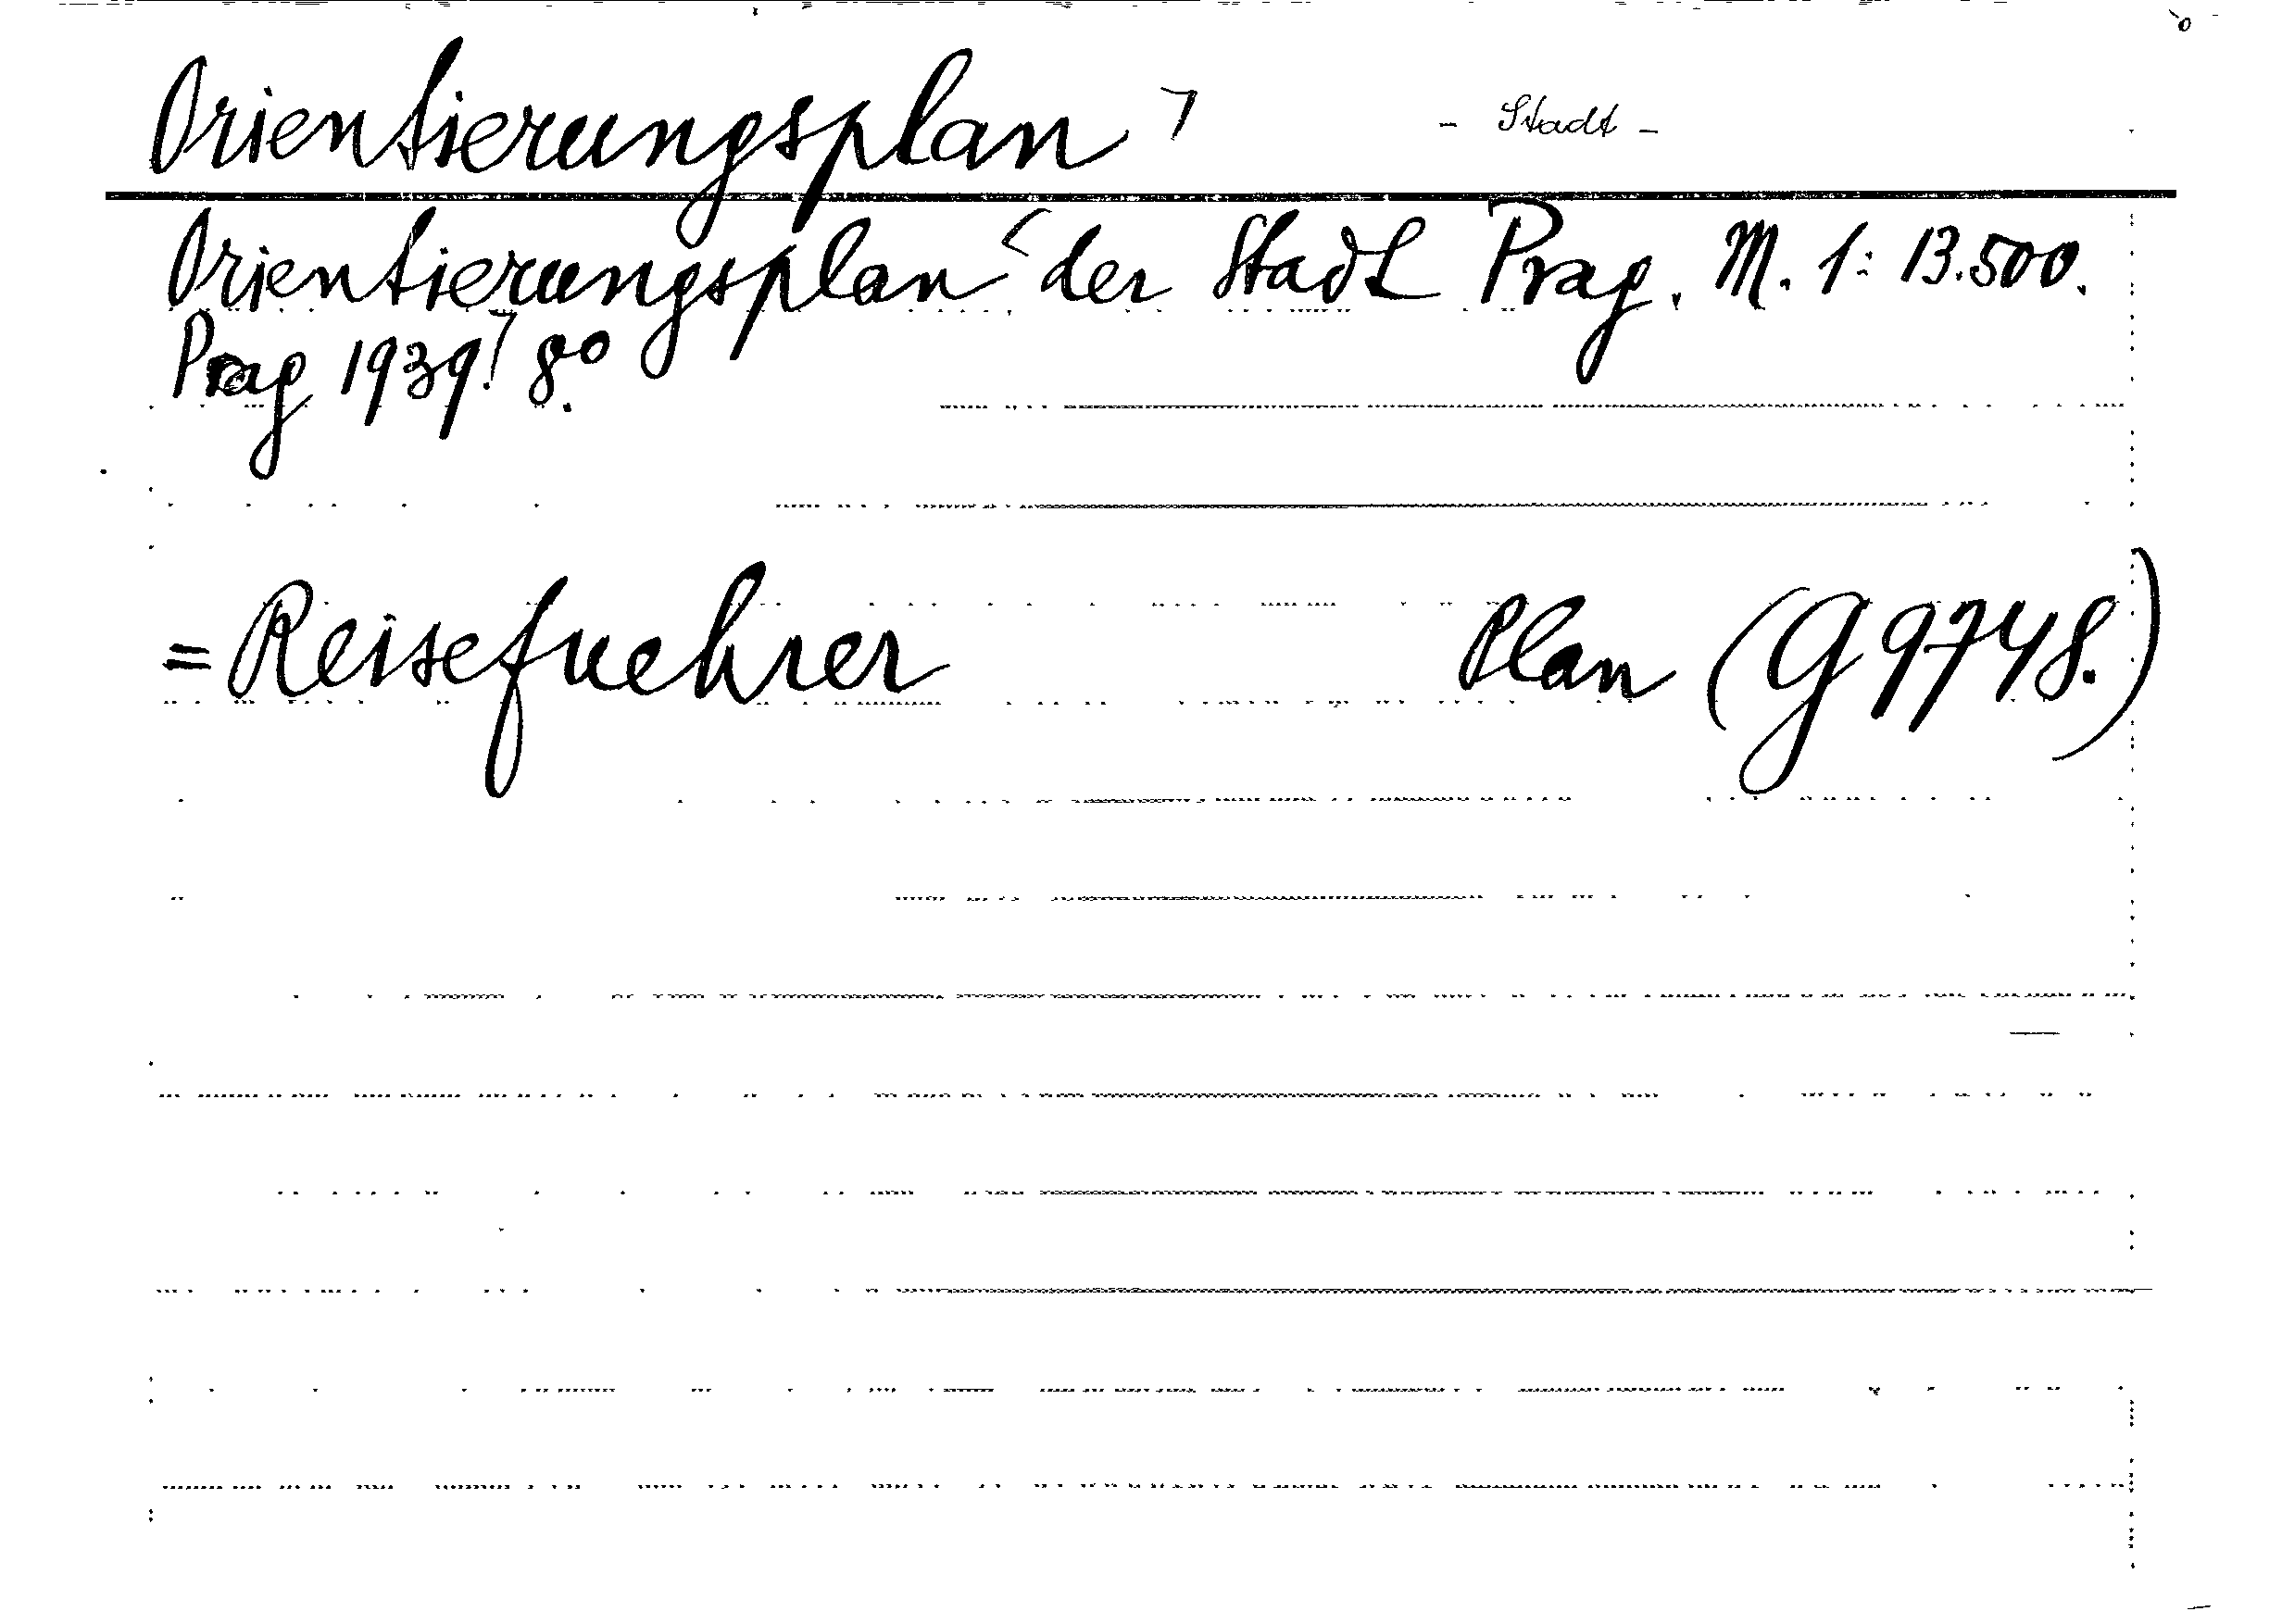 Orientierungsplan ⁊ - Stadt -
Orientierungsplan der Stadt Prag. M. 1:13.500.
Prag 1939. 8°.
= Reisefuehrer Plan (G 9748.)